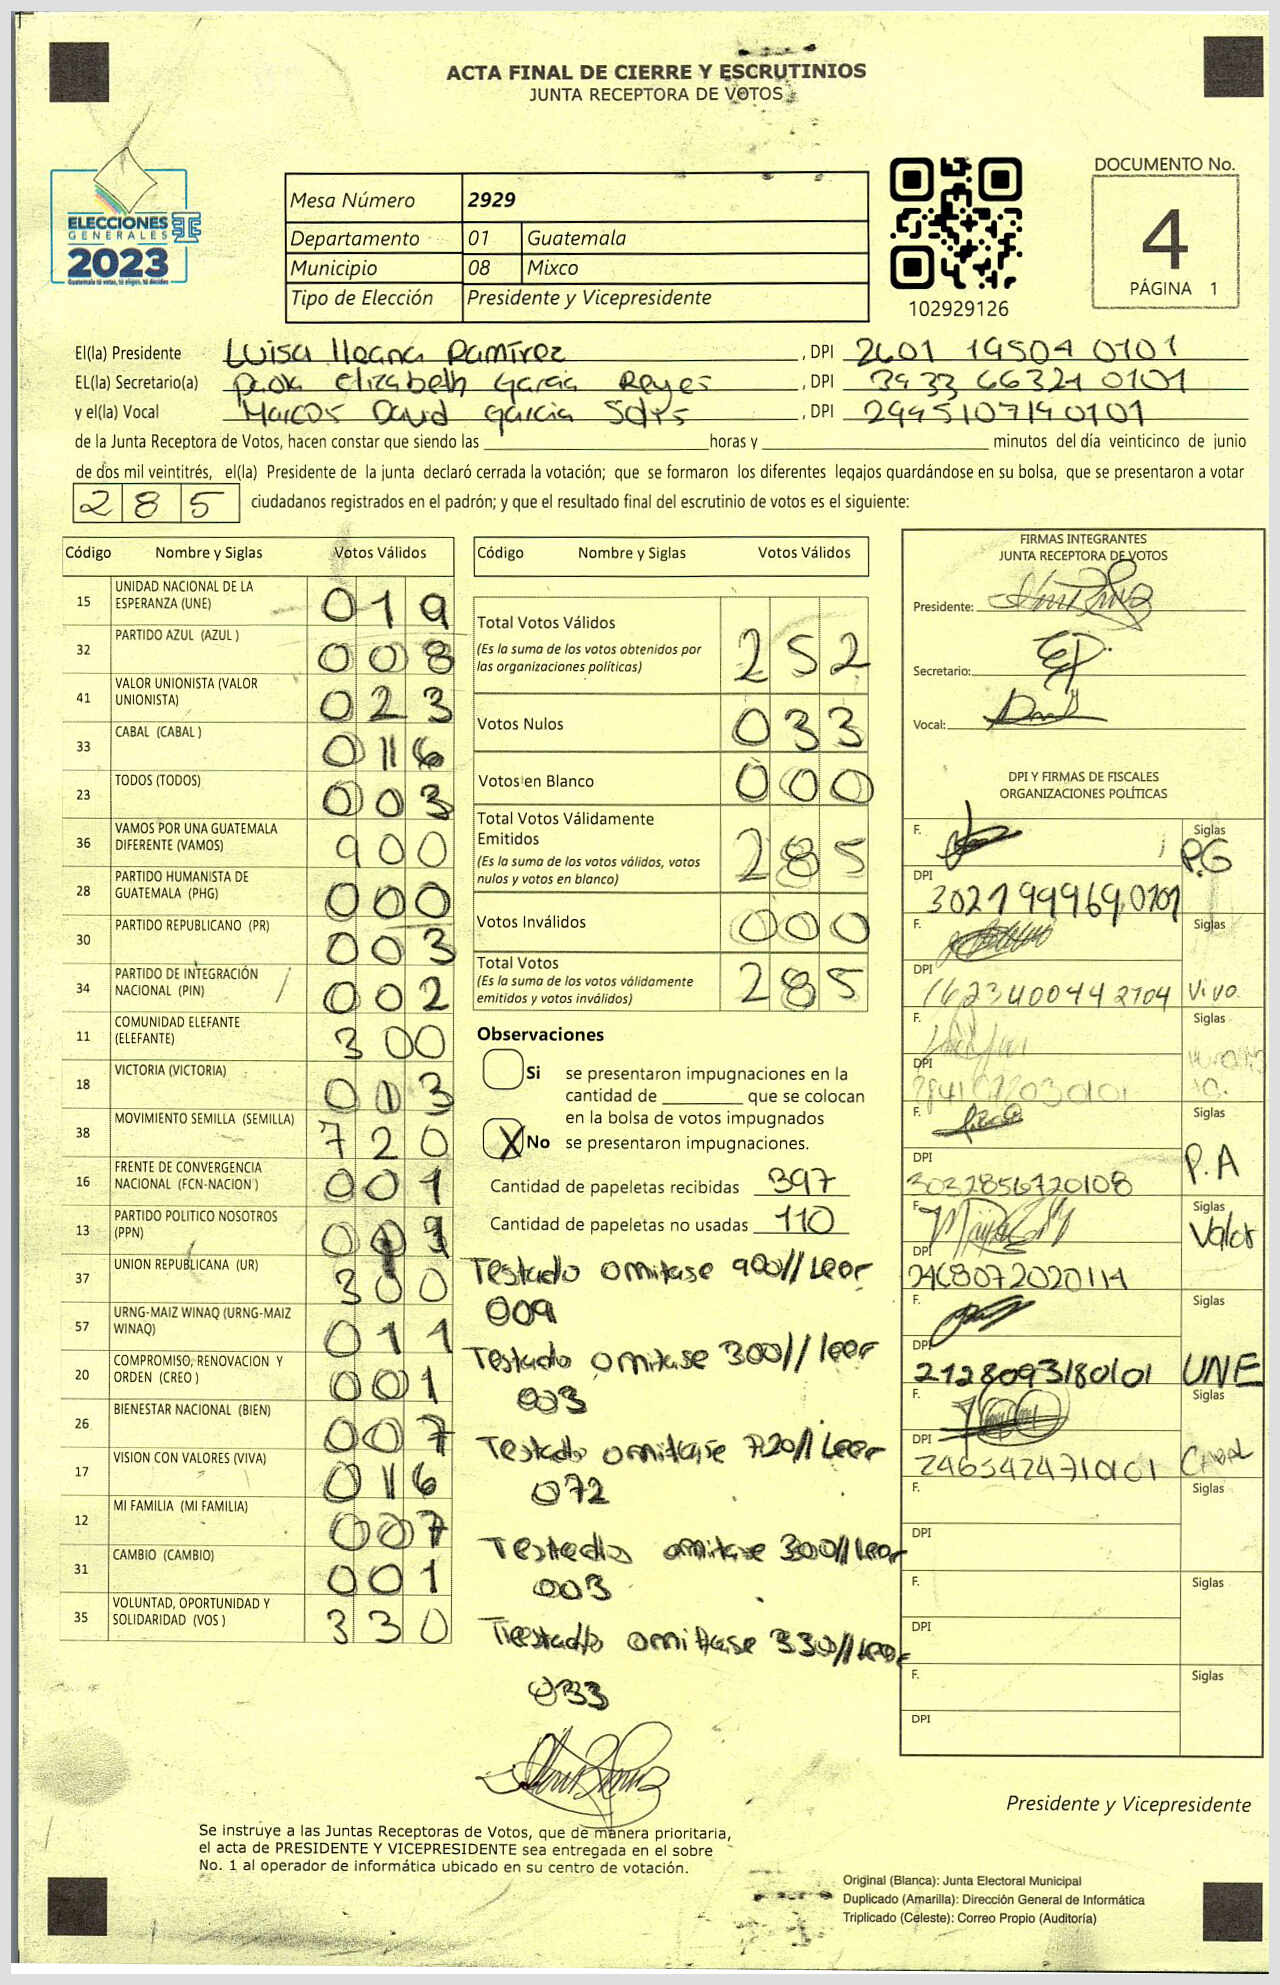 ACTA FINAL DE CIERRE Y ESCRUTINIOS
JUNTA RECEPTORA DE VOTOS
ELECCIONES
GENERALES
2023
Guatemala tú votas, tú eliges, tú decides
Mesa Número 2929
Departamento 01 Guatemala
Municipio 08 Mixco
Tipo de Elección Presidente y Vicepresidente
102929126
DOCUMENTO No.
4
PÁGINA 1
El(la) Presidente Luisa Ileana Ramírez , DPI 2601 19504 0101
EL(la) Secretario(a) Paola Elizabeth Garcia Reyes , DPI 3933 66321 0101
y el(la) Vocal Marcos David Garcia , DPI 2995107190101
de la Junta Receptora de Votos, hacen constar que siendo las horas y minutos del día veinticinco de junio
de dos mil veintitrés, el(la) Presidente de la junta declaró cerrada la votación; que se formaron los diferentes legajos guardándose en su bolsa, que se presentaron a votar
285 ciudadanos registrados en el padrón; y que el resultado final del escrutinio de votos es el siguiente:
Código Nombre y Siglas Votos Válidos
15 UNIDAD NACIONAL DE LA ESPERANZA (UNE) 019
32 PARTIDO AZUL (AZUL ) 008
41 VALOR UNIONISTA (VALOR UNIONISTA) 023
33 CABAL (CABAL ) 016
23 TODOS (TODOS) 003
36 VAMOS POR UNA GUATEMALA DIFERENTE (VAMOS) 900
28 PARTIDO HUMANISTA DE GUATEMALA (PHG) 000
30 PARTIDO REPUBLICANO (PR) 003
34 PARTIDO DE INTEGRACIÓN NACIONAL (PIN) 002
11 COMUNIDAD ELEFANTE (ELEFANTE) 300
18 VICTORIA (VICTORIA) 003
38 MOVIMIENTO SEMILLA (SEMILLA) 720
16 FRENTE DE CONVERGENCIA NACIONAL (FCN-NACION ) 001
13 PARTIDO POLITICO NOSOTROS (PPN)
37 UNION REPUBLICANA (UR) 300
57 URNG-MAIZ WINAQ (URNG-MAIZ WINAQ) 011
20 COMPROMISO, RENOVACION Y ORDEN (CREO ) 001
26 BIENESTAR NACIONAL (BIEN) 007
17 VISION CON VALORES (VIVA) 016
12 MI FAMILIA (MI FAMILIA) 007
31 CAMBIO (CAMBIO) 001
35 VOLUNTAD, OPORTUNIDAD Y SOLIDARIDAD (VOS ) 330
Código Nombre y Siglas Votos Válidos
Total Votos Válidos 252
(Es la suma de los votos obtenidos por
las organizaciones políticas)
Votos Nulos 033
Votos en Blanco 000
Total Votos Válidamente
Emitidos 285
(Es la suma de los votos válidos, votos
nulos y votos en blanco)
Votos Inválidos 000
Total Votos 285
(Es la suma de los votos válidamente
emitidos y votos inválidos)
Observaciones
Si se presentaron impugnaciones en la
cantidad de que se colocan
en la bolsa de votos impugnados
X No se presentaron impugnaciones.
Cantidad de papeletas recibidas 397
Cantidad de papeletas no usadas 110
Testado omitase 900// Leer
009
Testado omitase 300// leer
003
Testado omitase 720// Leer
072
Testado omitase 300// Leer
003
Testado omitase 330// Leer
033
FIRMAS INTEGRANTES
JUNTA RECEPTORA DE VOTOS
Presidente:
Secretario:
Vocal:
DPI Y FIRMAS DE FISCALES
ORGANIZACIONES POLÍTICAS
F. Siglas
P.G
DPI 3021999690101
F. Siglas
DPI 1623400442704 Vivo.
F. Siglas
DPI
F. Siglas
DPI P.A
3032856720108
F. Siglas
Valor
DPI
2468072020114
F. Siglas
DPI
2128093180101 UNE
F. Siglas
DPI
2465424710101 CABAL
F. Siglas
DPI
F. Siglas
DPI
F. Siglas
DPI
Presidente y Vicepresidente
Se instruye a las Juntas Receptoras de Votos, que de manera prioritaria,
el acta de PRESIDENTE Y VICEPRESIDENTE sea entregada en el sobre
No. 1 al operador de informática ubicado en su centro de votación.
Original (Blanca): Junta Electoral Municipal
Duplicado (Amarilla): Dirección General de Informática
Triplicado (Celeste): Correo Propio (Auditoría)